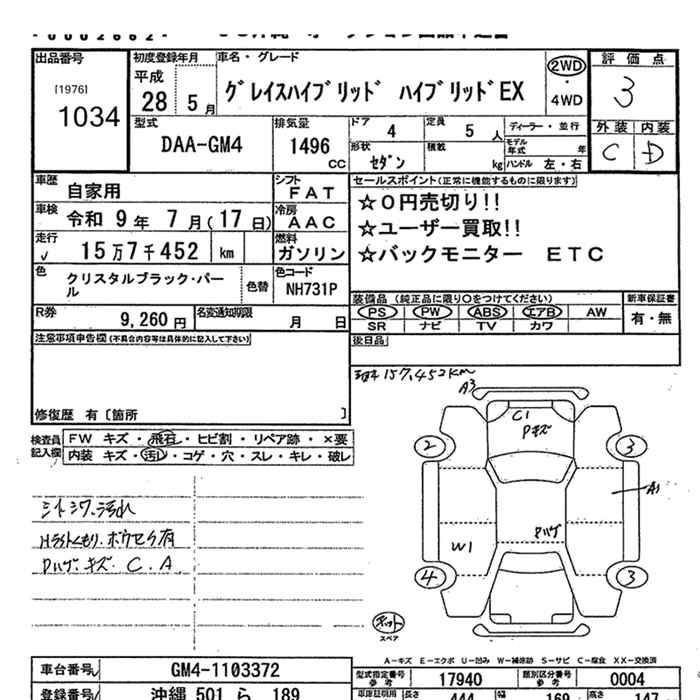 出品番号
[1976]
1034
初度登録年月
平成
28 5 月
車名・グレード
グレイスハイブリッド ハイブリッドEX
2WD
・
4WD
評価点
3
外装 内装
C D
型式
DAA-GM4
排気量
1496
CC
ドア
4
定員
5 人
形状
セダン
積載
kg
ディーラー・並行
モデル年式 年
ハンドル 左・右
車歴
自家用
シフト
FAT
車検
令和 9 年 7 月(17 日)
冷房
AAC
走行
✓ 15 万 7 千 452 km
燃料
ガソリン
色
クリスタルブラック・パール
色替
色コード
NH731P
R券
9,260 円
名変通知期限
月 日
セールスポイント(正常に機能するものに限ります)
☆0円売切り!!
☆ユーザー買取!!
☆バックモニター ETC
装備品 (純正品に限り○をつけてください)
PS PW ABS エアB AW
SR ナビ TV カワ
新車保証書
有・無
後日品
注意事項申告欄(不具合内容等は具体的に記入して下さい)
修復歴 有〔箇所 〕
検査員記入欄
FW キズ・飛石・ヒビ割・リペア跡・×要
内装 キズ・汚レ・コゲ・穴・スレ・キレ・破レ
シートシワ.汚れ
Hライトくもり.ボウセイ有
Dハゲ.キズ. C. A
157,452km
A3
C1
Pキズ
2
3
A1
Dハゲ
W1
4
3
スペア
A-キズ E-エクボ U-凹み W-補修跡 S-サビ C-腐食 XX-交換済
車台番号
GM4-1103372
登録番号
沖縄 501 ら 189
型式指定番号
参考
17940
類別区分番号
参考
0004
車庫証明用
長さ 444
幅 169
高さ 147